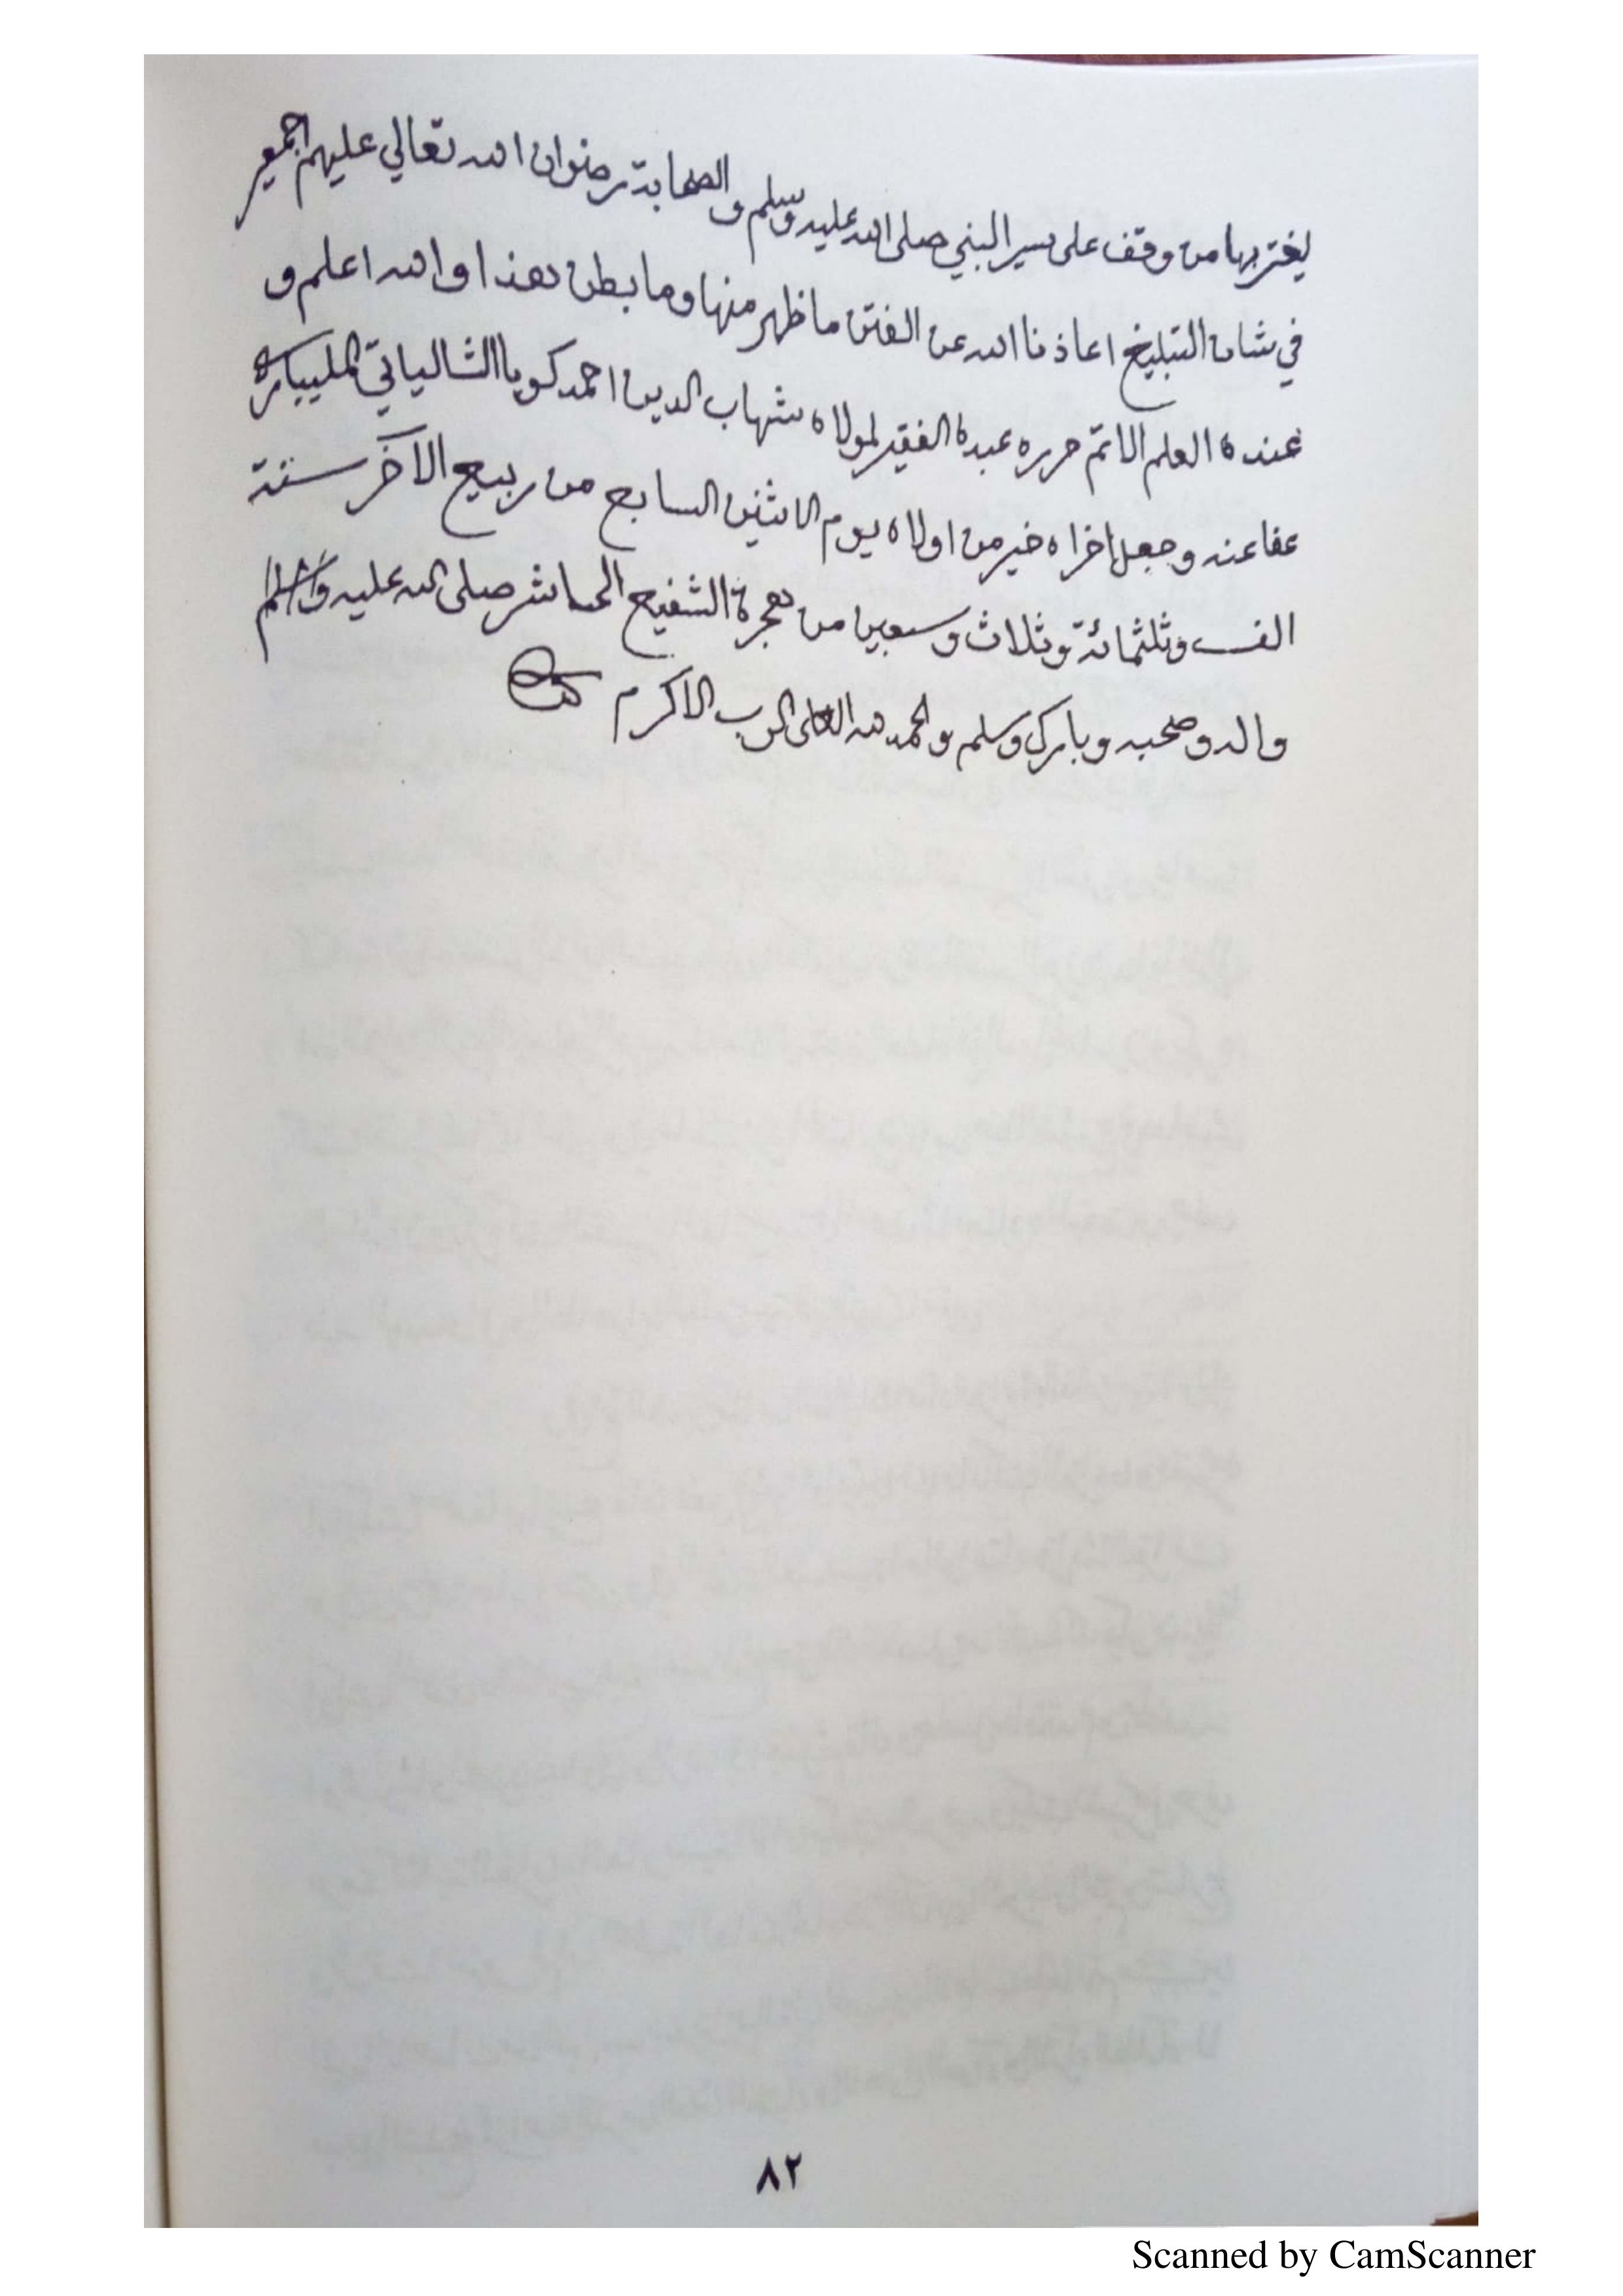 يغتر بها من وقف على سير النبي صلى الله عليه وسلم والصحابة رضوان الله تعالي عليهم اجمعين
في شان التبليغ اعاذنا الله عن الفتن ما ظهر منها وما بطن هذا والله اعلم و
عنده العلم الاتم حرره عبده الفقير لمولاه شهاب الدين احمد كويا الشالياتي المليباري
عفا عنه وجعل اخراه خير من اولاه يوم الاثنين السابع من ربيع الآخر سنة
الف وثلثمائة وثلاث وسبعين من هجرة الشفيع الحاشر صلى الله عليه
واله وصحبه وبارك وسلم والحمد لله العلى الرب الاكرم
٨٢
Scanned by CamScanner